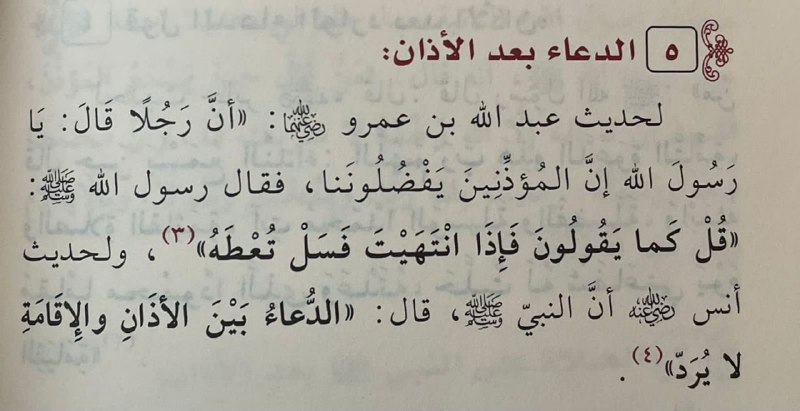 ٥ الدعاء بعد الأذان:
لحديث عبد الله بن عمرو رضي الله عنهما: «أنَّ رَجُلًا قَالَ: يَا
رَسُولَ الله إنَّ المُؤذِّنِينَ يَفْضُلُونَنا، فقال رسول الله ﷺ:
«قُلْ كَما يَقُولُونَ فَإِذَا انْتَهَيْتَ فَسَلْ تُعْطَهُ»(٣)، ولحديث
أنس رضي الله عنه أنَّ النبيّ ﷺ، قال: «الدُّعاءُ بَيْنَ الأذَانِ والإِقَامَةِ
لا يُرَدّ»(٤).